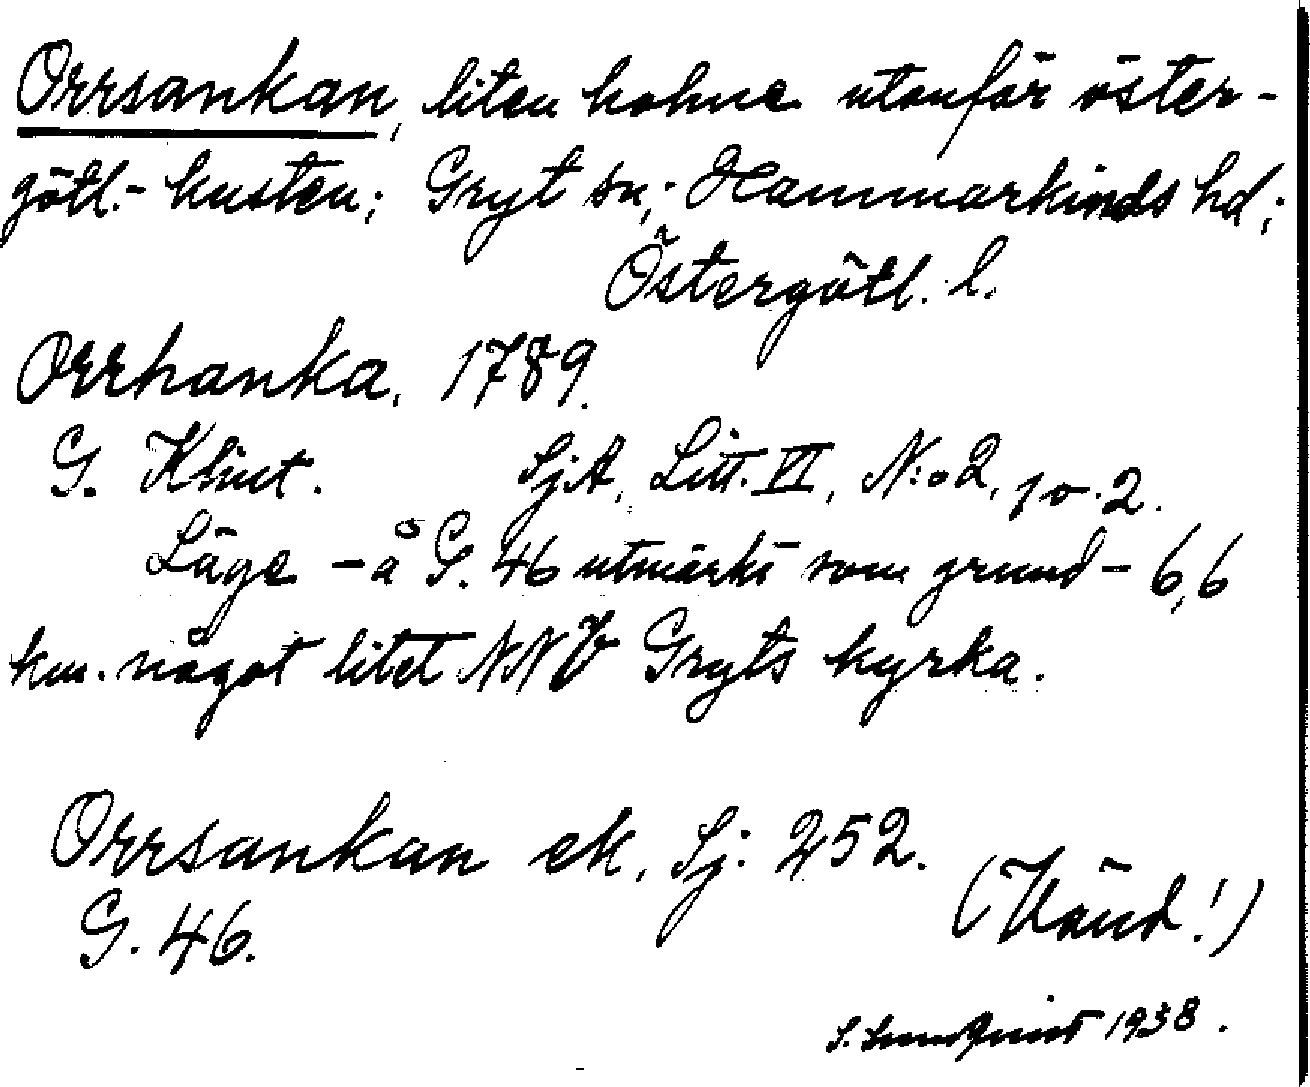 Orrsankan, liten holme utanför öster-
götl.- kusten; Gryt sn; Hammarkinds hd;
Östergötl. l.
Orrhanka. 1789.
G. Klint. SjA, Litt. VI, N:o 2, po. 2.
Läge - å G. 46 utmärkt som grund - 6,6
km. något litet NNV Gryts kyrka.
Orrsankan ek. Sj: 252.
G. 46.
(Vänd!)
S. Lundquist 1938.